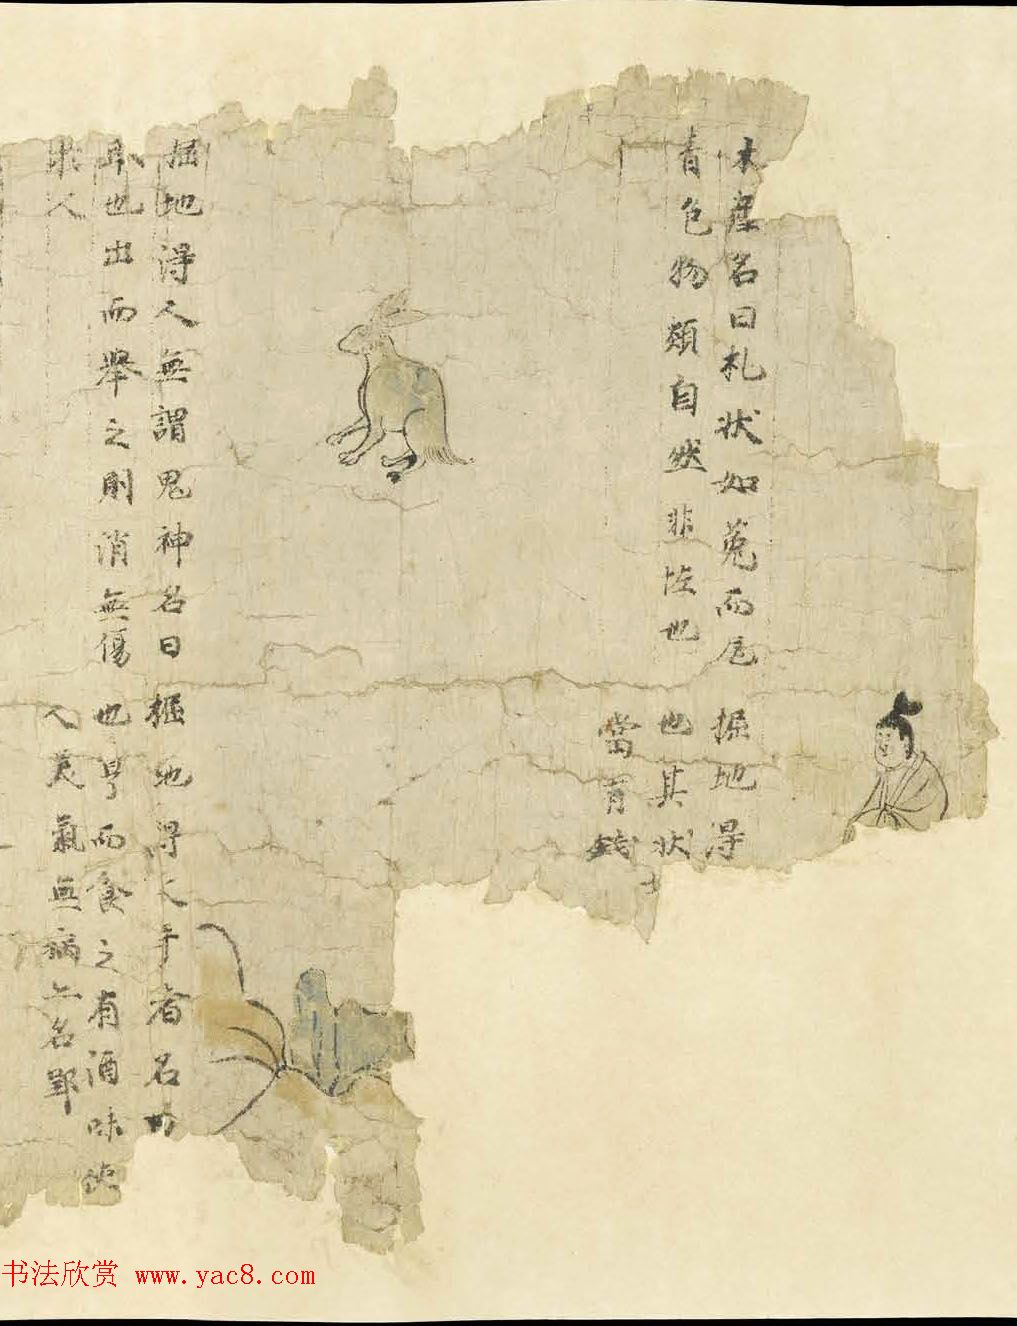 木塵名曰札狀如菟而尾
青色物類自然非恠也
掘地得
也其狀
當有錢
掘地得人無謂鬼神名曰
也出而舉之則消無傷
人
掘地得 手者名
也亨而食之有酒味使
人美氣無病 名
书法欣赏 www.yac8.com